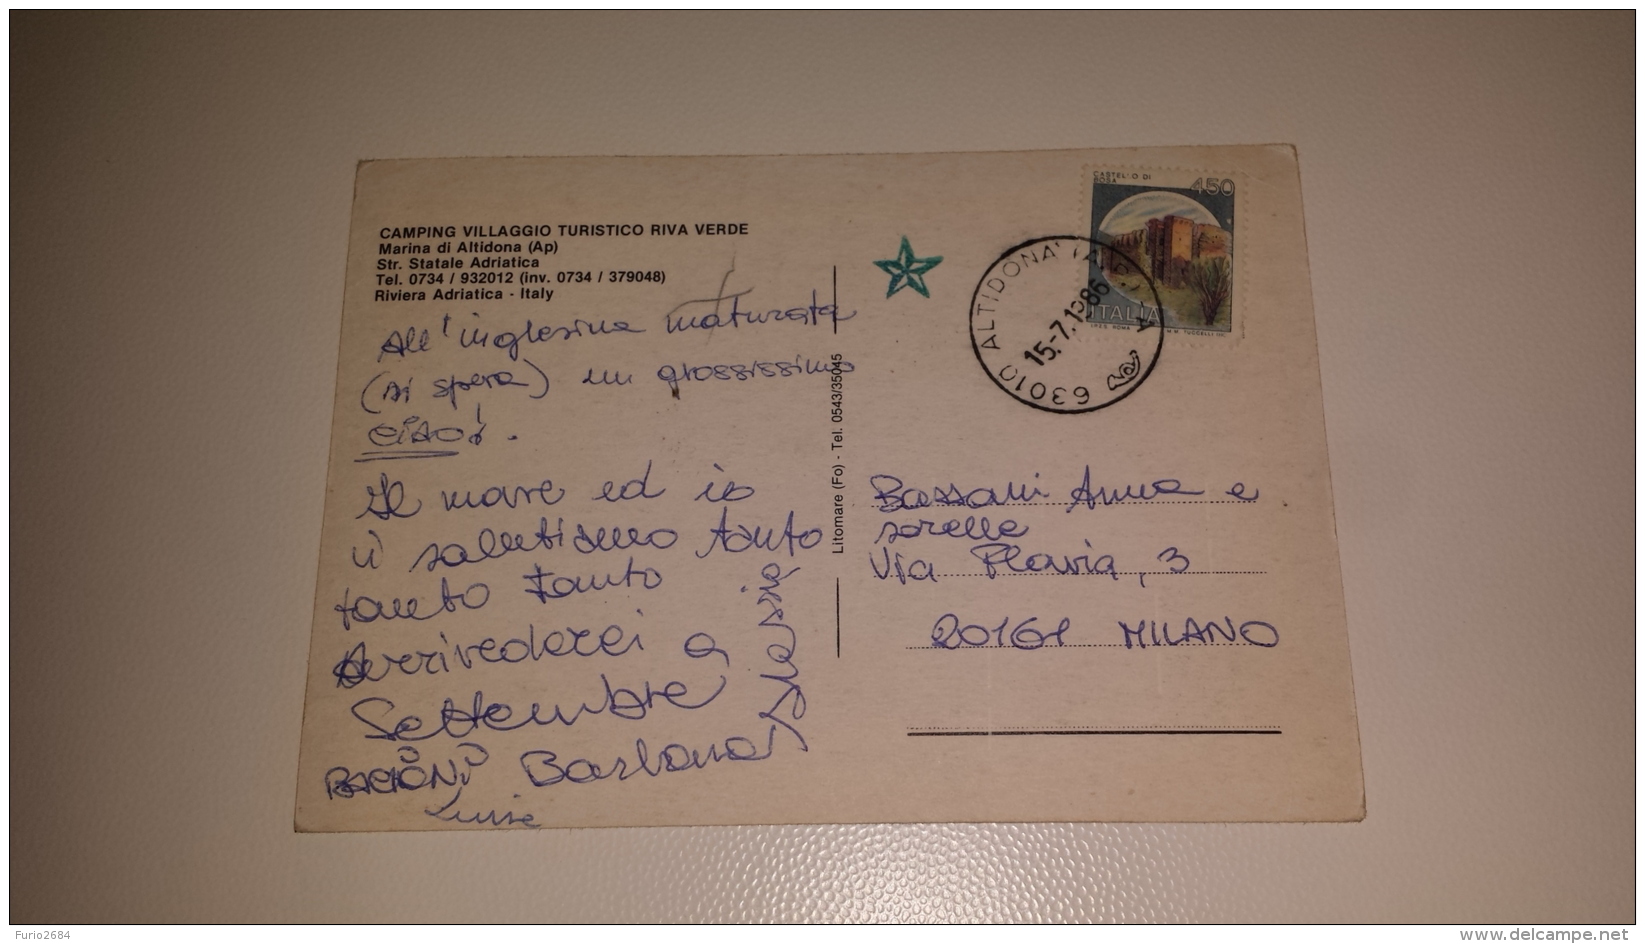 CAMPING VILLAGGIO TURISTICO RIVA VERDE
Marina di Altidona (Ap)
Str. Statale Adriatica
Tel. 0734 / 932012 (inv. 0734 / 379048)
Riviera Adriatica - Italy
All'inglesina maturata
(si spera) un grossissimo
CIAO!.
Il mare ed io
vi salutiamo tanto
tanto tanto
Arrivederci a
Settembre
BACIONI Barbara
Maria
Litomare (Fo) - Tel. 0543/35045
CASTELLO DI
BOSA
450
ITALIA
I.P.Z.S. ROMA
63010 ALTIDONA (A.P.) - A
15.-7.1986
Bassani Anna e
sorelle
Via Flavia, 3
20161 MILANO
Furio2684
www.delcampe.net